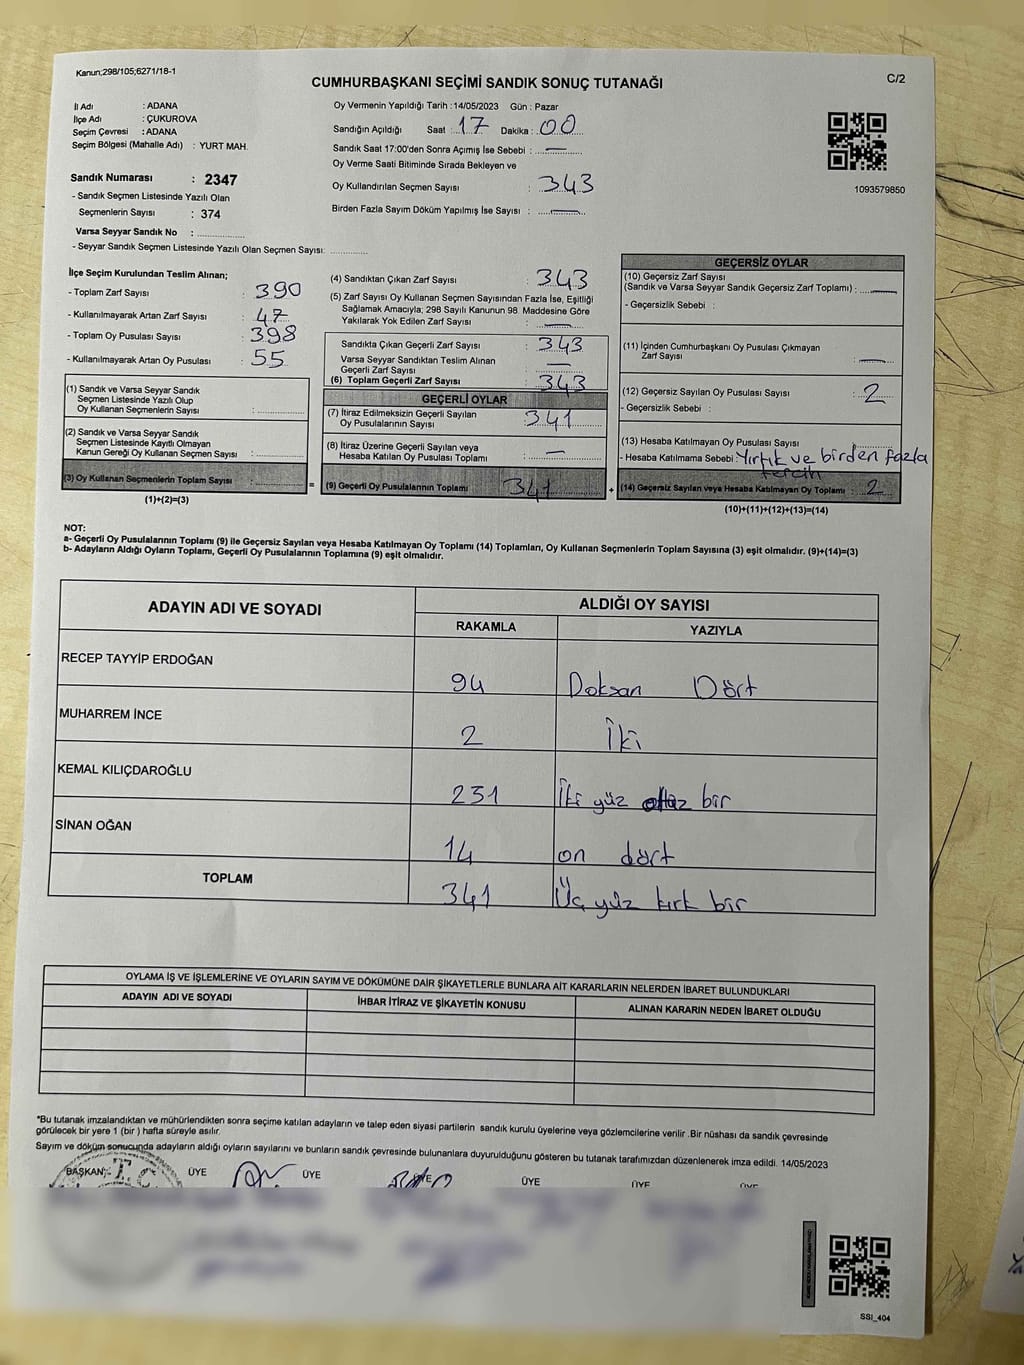 Kanun;298/105;6271/18-1
C/2
CUMHURBAŞKANI SEÇİMİ SANDIK SONUÇ TUTANAĞI
İl Adı : ADANA
İlçe Adı : ÇUKUROVA
Seçim Çevresi : ADANA
Seçim Bölgesi (Mahalle Adı) : YURT MAH.
Sandık Numarası : 2347
- Sandık Seçmen Listesinde Yazılı Olan
Seçmenlerin Sayısı : 374
Varsa Seyyar Sandık No : ..............
- Seyyar Sandık Seçmen Listesinde Yazılı Olan Seçmen Sayısı: ............
Oy Vermenin Yapıldığı Tarih : 14/05/2023 Gün : Pazar
Sandığın Açıldığı Saat : 17 Dakika : 00
Sandık Saat 17:00'den Sonra Açımış İse Sebebi : —
Oy Verme Saati Bitiminde Sırada Bekleyen ve
Oy Kullandırılan Seçmen Sayısı : 343
Birden Fazla Sayım Döküm Yapılmış İse Sayısı : —
1093579850
İlçe Seçim Kurulundan Teslim Alınan;
- Toplam Zarf Sayısı : 390
- Kullanılmayarak Artan Zarf Sayısı : 47
- Toplam Oy Pusulası Sayısı : 398
- Kullanılmayarak Artan Oy Pusulası : 55
(1) Sandık ve Varsa Seyyar Sandık
Seçmen Listesinde Yazılı Olup
Oy Kullanan Seçmenlerin Sayısı : ..............
(2) Sandık ve Varsa Seyyar Sandık
Seçmen Listesinde Kayıtlı Olmayan
Kanun Gereği Oy Kullanan Seçmen Sayısı : ..............
(3) Oy Kullanan Seçmenlerin Toplam Sayısı : ..............
(1)+(2)=(3)
=
(4) Sandıktan Çıkan Zarf Sayısı : 343
(5) Zarf Sayısı Oy Kullanan Seçmen Sayısından Fazla İse, Eşitliği
Sağlamak Amacıyla; 298 Sayılı Kanunun 98. Maddesine Göre
Yakılarak Yok Edilen Zarf Sayısı : —
Sandıkta Çıkan Geçerli Zarf Sayısı : 343
Varsa Seyyar Sandıktan Teslim Alınan
Geçerli Zarf Sayısı : —
(6) Toplam Geçerli Zarf Sayısı : 343
GEÇERLİ OYLAR
(7) İtiraz Edilmeksizin Geçerli Sayılan
Oy Pusulalarının Sayısı : 341
(8) İtiraz Üzerine Geçerli Sayılan veya
Hesaba Katılan Oy Pusulası Toplamı : —
(9) Geçerli Oy Pusulalarının Toplamı : 341
+
GEÇERSİZ OYLAR
(10) Geçersiz Zarf Sayısı
(Sandık ve Varsa Seyyar Sandık Geçersiz Zarf Toplamı) : —
- Geçersizlik Sebebi :
(11) İçinden Cumhurbaşkanı Oy Pusulası Çıkmayan
Zarf Sayısı : —
(12) Geçersiz Sayılan Oy Pusulası Sayısı : 2
- Geçersizlik Sebebi :
(13) Hesaba Katılmayan Oy Pusulası Sayısı : ..........
- Hesaba Katılmama Sebebi : Yırtık ve birden fazla
tercih
(14) Geçersiz Sayılan veya Hesaba Katılmayan Oy Toplamı : 2
(10)+(11)+(12)+(13)=(14)
NOT:
a- Geçerli Oy Pusulalarının Toplamı (9) ile Geçersiz Sayılan veya Hesaba Katılmayan Oy Toplamı (14) Toplamları, Oy Kullanan Seçmenlerin Toplam Sayısına (3) eşit olmalıdır. (9)+(14)=(3)
b- Adayların Aldığı Oyların Toplamı, Geçerli Oy Pusulalarının Toplamına (9) eşit olmalıdır.
ADAYIN ADI VE SOYADI
ALDIĞI OY SAYISI
RAKAMLA
YAZIYLA
RECEP TAYYİP ERDOĞAN 94 Doksan Dört
MUHARREM İNCE 2 İki
KEMAL KILIÇDAROĞLU 231 İki yüz otuz bir
SİNAN OĞAN 14 on dört
TOPLAM 341 Üç yüz kırk bir
OYLAMA İŞ VE İŞLEMLERİNE VE OYLARIN SAYIM VE DÖKÜMÜNE DAİR ŞİKAYETLERLE BUNLARA AİT KARARLARIN NELERDEN İBARET BULUNDUKLARI
ADAYIN ADI VE SOYADI
İHBAR İTİRAZ VE ŞİKAYETİN KONUSU
ALINAN KARARIN NEDEN İBARET OLDUĞU
*Bu tutanak imzalandıktan ve mühürlendikten sonra seçime katılan adayların ve talep eden siyasi partilerin sandık kurulu üyelerine veya gözlemcilerine verilir .Bir nüshası da sandık çevresinde
görülecek bir yere 1 (bir ) hafta süreyle asılır.
Sayım ve döküm sonucunda adayların aldığı oyların sayılarını ve bunların sandık çevresinde bulunanlara duyurulduğunu gösteren bu tutanak tarafımızdan düzenlenerek imza edildi. 14/05/2023
BAŞKAN ÜYE ÜYE ÜYE ÜYE ÜYE ÜYE
T.C
SSI_404